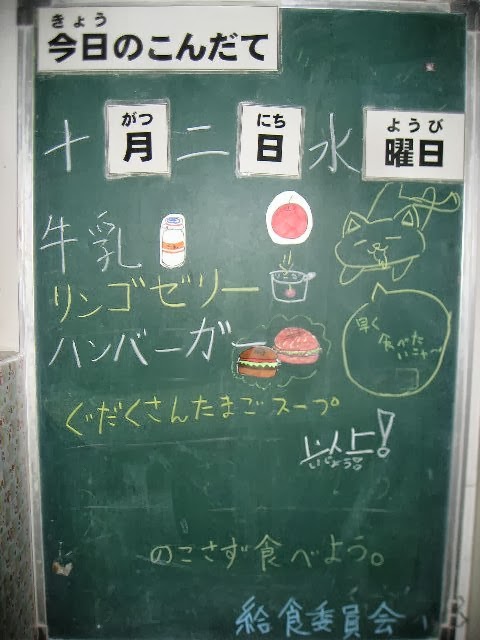 きょう
今日のこんだて
がつ にち ようび
十月二日水曜日
牛乳
リンゴゼリー
ハンバーガー
ぐだくさんたまごスープ
早く
食べた
いニャ〜
以上!
いじょう!
のこさず食べよう。
給食委員会